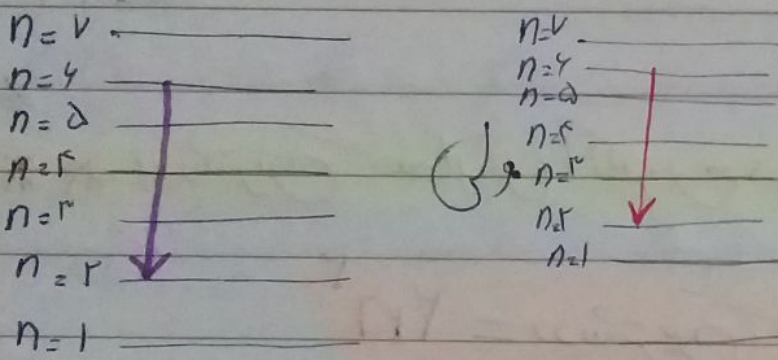 n=۷
n=۶
n=۵
n=۴
n=۳
n=۲
n=۱
n=۷
n=۶
n=۵
n=۴
n=۳
n=۲
n=۱